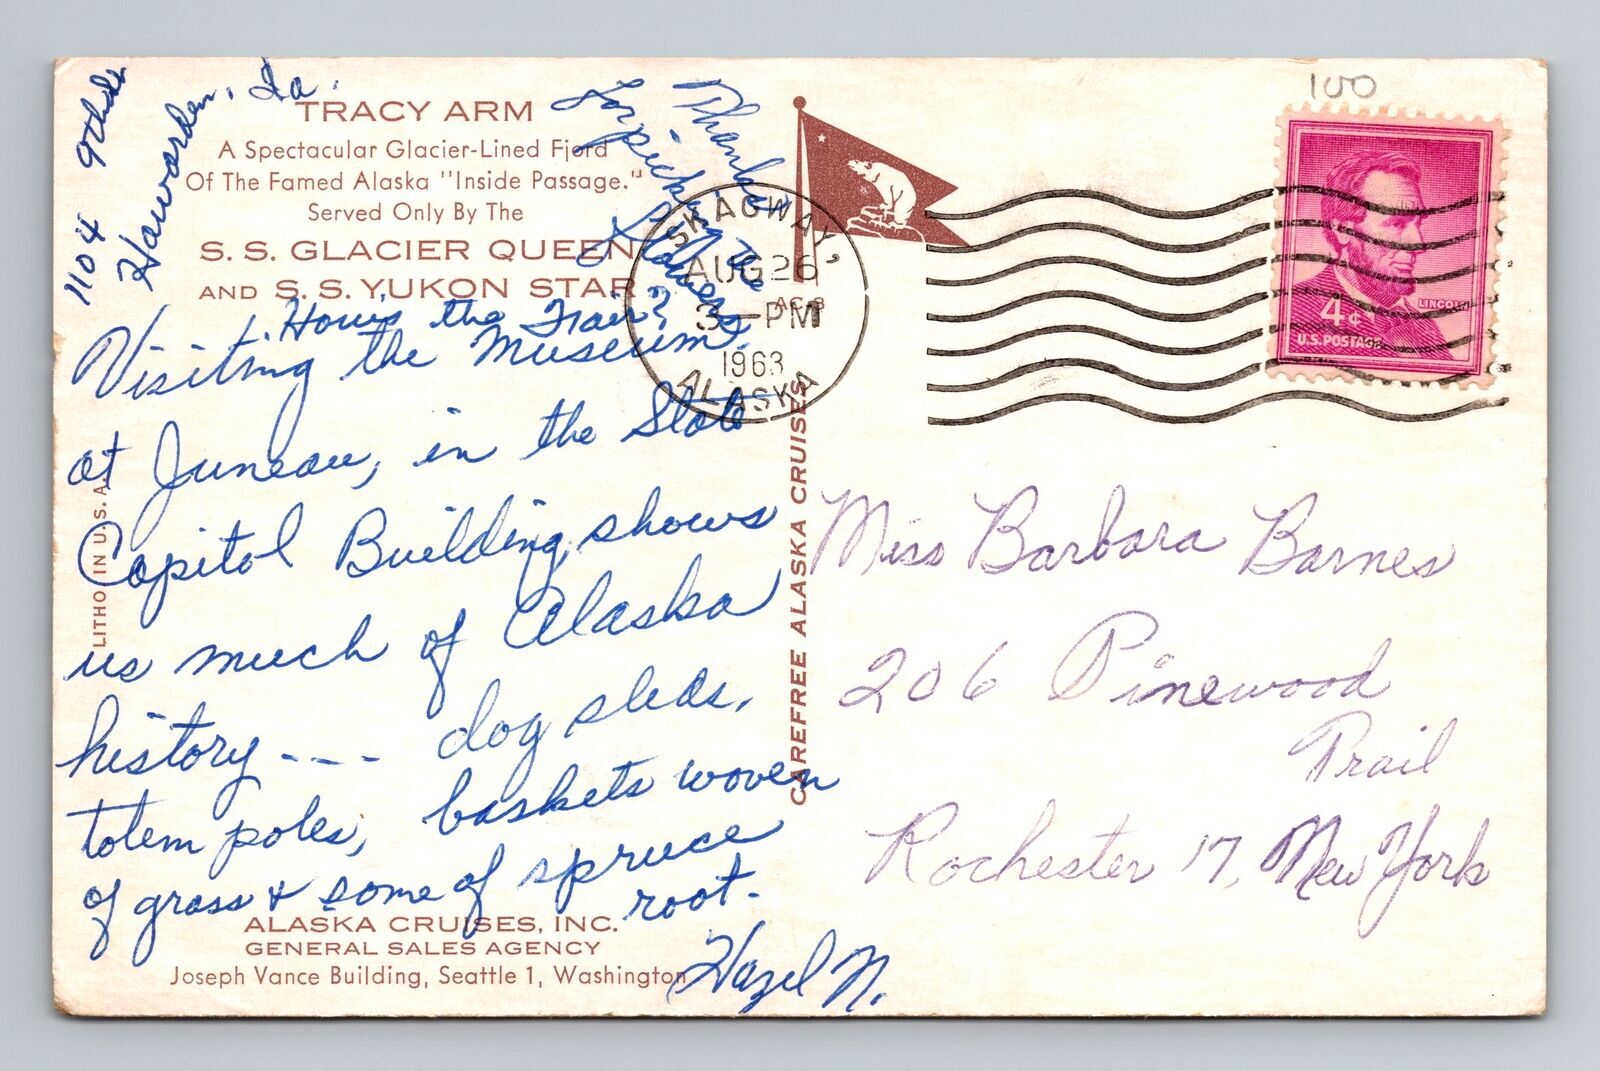 100
1104
Hawarden, Ia.
TRACY ARM
A Spectacular Glacier-Lined Fjord
Of The Famed Alaska "Inside Passage."
Served Only By The
S. S. GLACIER QUEEN
AND S. S. YUKON STAR
Thanks
for picking
flowers
How's the Fair?
Visiting the Museum
at Juneau, in the State
Capitol Building, shows
us much of Alaska
history --- dog sleds,
totem poles, baskets woven
of grass & some of spruce
root.
Hazel N.
ALASKA CRUISES, INC.
GENERAL SALES AGENCY
Joseph Vance Building, Seattle 1, Washington
LITHO IN U. S. A.
CAREFREE ALASKA CRUISES
SKAGWAY,
AUG 26
3 - PM
1963
ALASKA
LINCOLN
4¢
U.S. POSTAGE
Miss Barbara Barnes
206 Pinewood
Trail
Rochester 17, New York